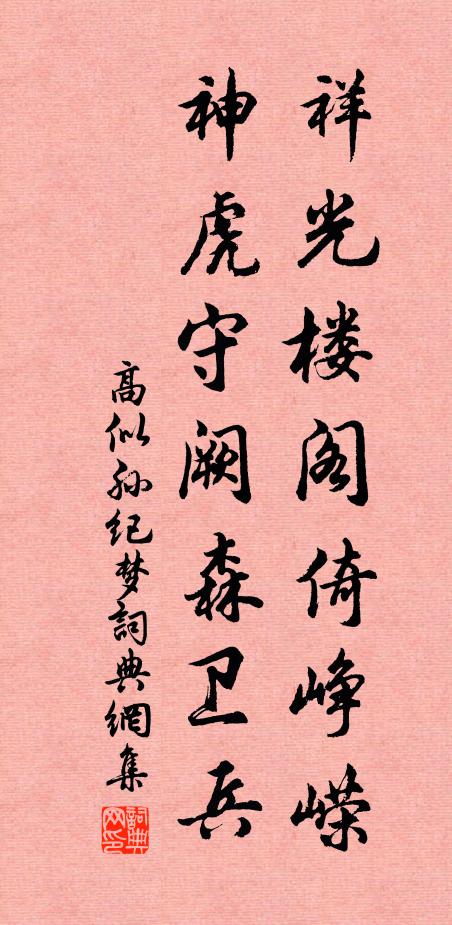 祥光楼阁倚峥嵘
神虎守阙森卫兵
高似孙纪梦词典網集
詞典网印